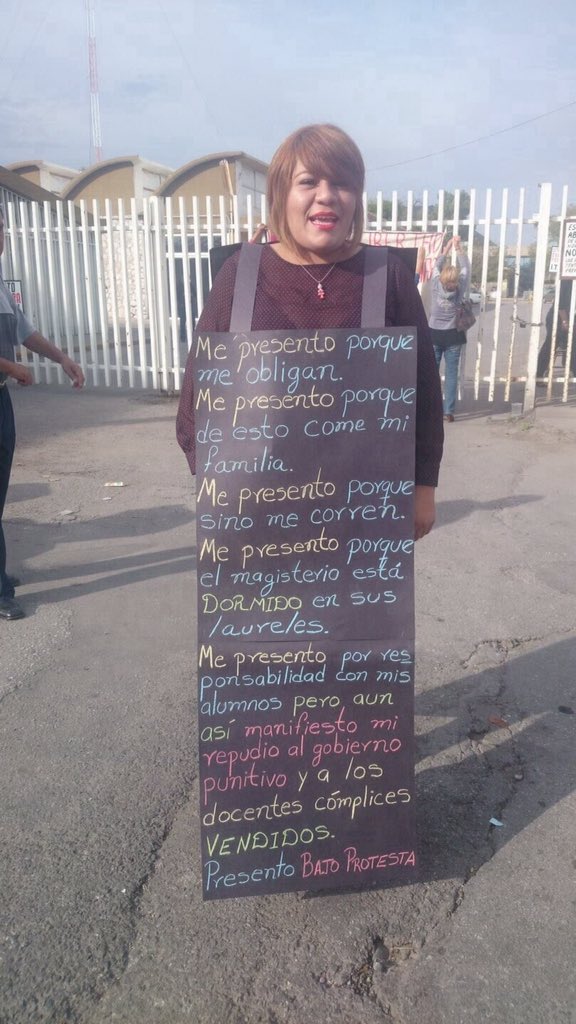 Me presento porque
me obligan.
Me presento porque
de esto come mi
familia.
Me presento porque
sino me corren.
Me presento porque
el magisterio está
DORMIDO en sus
laureles.
Me presento por res
ponsabilidad con mis
alumnos pero aun
así manifiesto mi
repudio al gobierno
punitivo y a los
docentes cómplices
VENDIDOS.
Presento BAJO PROTESTA
NO